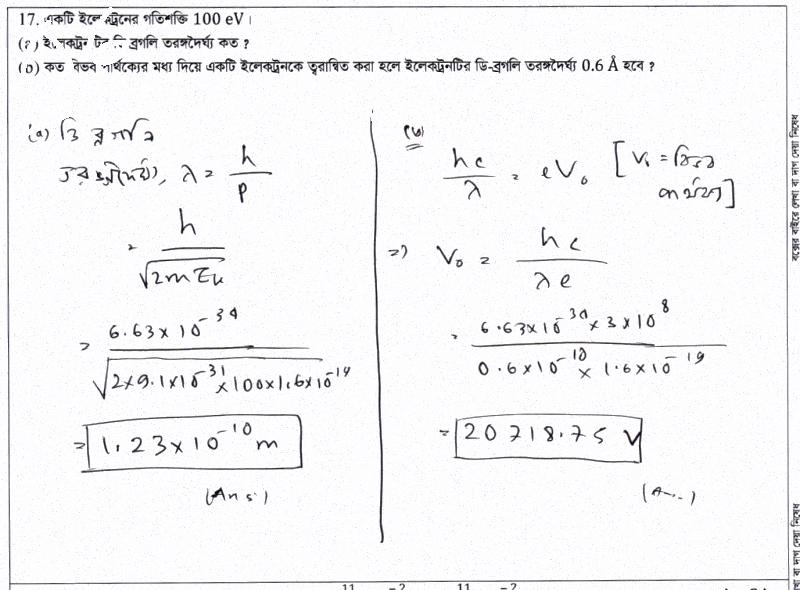 17. একটি ইলেকট্রনের গতিশক্তি 100 eV।
(a) ইলেকট্রনটির ডি ব্রগলি তরঙ্গদৈর্ঘ্য কত ?
(b) কত বিভব পার্থক্যের মধ্য দিয়ে একটি ইলেকট্রনকে ত্বরান্বিত করা হলে ইলেকট্রনটির ডি-ব্রগলি তরঙ্গদৈর্ঘ্য 0.6 Å হবে ?
(a) ডি ব্রগলি
তরঙ্গদৈর্ঘ্য, λ = h / p
= h / √2mEk
= 6.63×10^-34 / √2×9.1×10^-31×100×1.6×10^-19
= 1.23×10^-10 m
(Ans)
(b)
hc / λ = eV₀ [V₀ = বিভব
পার্থক্য]
=> V₀ = hc / λe
= 6.63×10^-34×3×10^8 / 0.6×10^-10×1.6×10^-19
= 20718.75 V
বক্সের বাইরে লেখা বা দাগ দেয়া নিষেধ
বা দাগ দেয়া নিষেধ